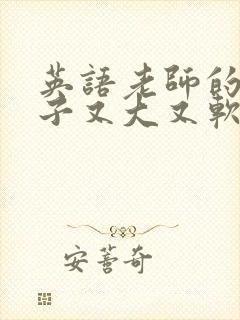 英語老師的
子又大又軟
安薈奇